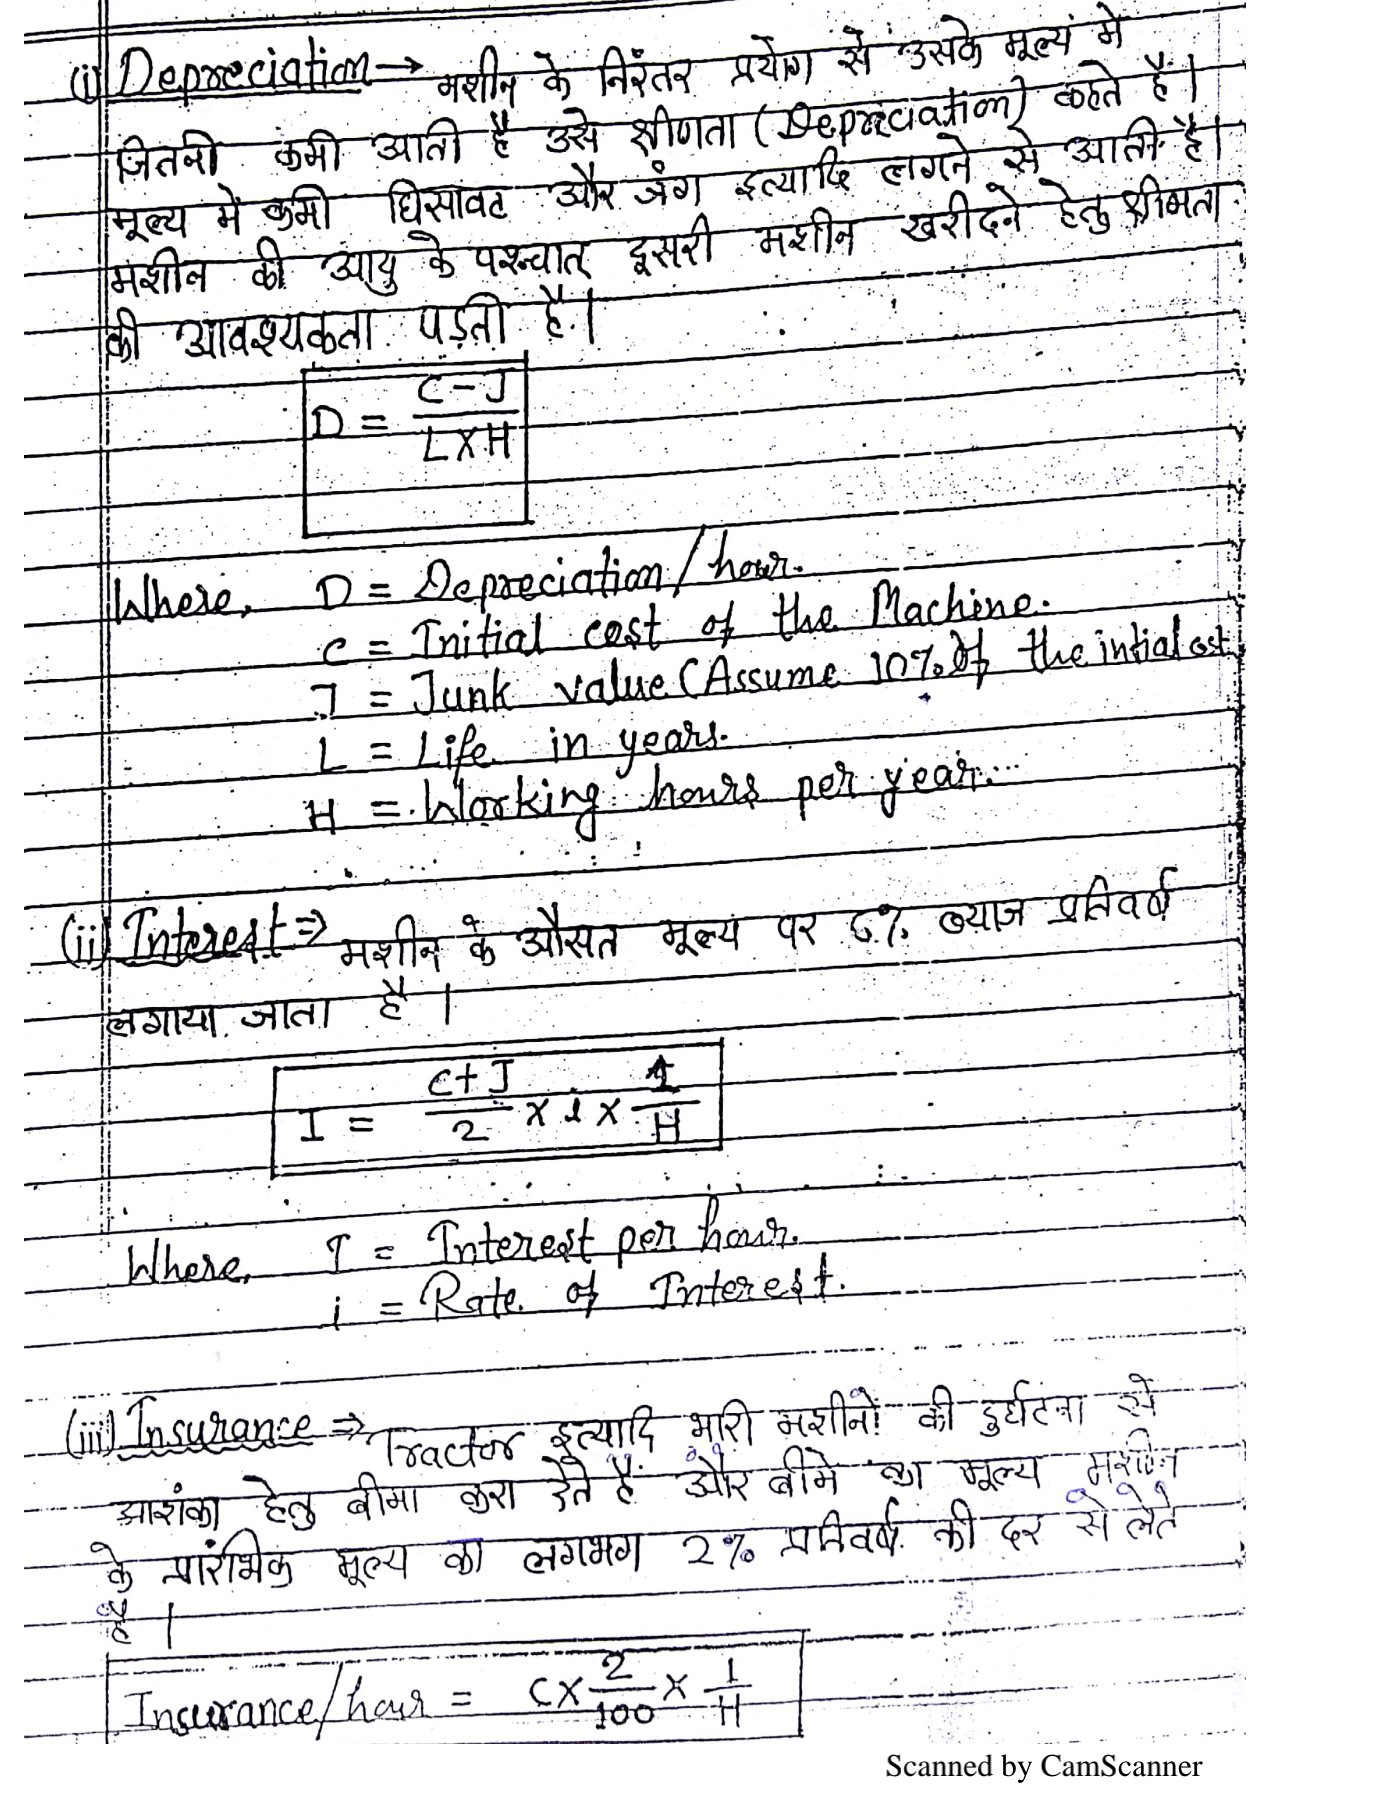 (i) Depreciation → मशीन के निरंतर प्रयोग से उसके मूल्य में
जितनी कमी आती है उसे क्षीणता (Depreciation) कहते है।
मूल्य में कमी घिसावट और जंग इत्यादि लगने से आती है।
मशीन की आयु के पश्चात् दूसरी मशीन खरीदने हेतु
की आवश्यकता पड़ती है।
D = C-J / L×H
Where, D = Depreciation/hour.
C = Initial cost of the Machine.
J = Junk value (Assume 10% of the intial cost
L = Life in years.
H = Working hours per year.
(ii) Interest ⇒ मशीन के औसत मूल्य पर % ब्याज प्रतिवर्ष
लगाया जाता है।
I = C+J / 2 × i × 1 / H
Where, I = Interest per hour.
i = Rate of Interest.
(iii) Insurance ⇒ Tractor इत्यादि भारी मशीनों की दुर्घटना से
आशंका हेतु बीमा करा देते हैं और बीमे का मूल्य मशीन
के प्रारंभिक मूल्य का लगभग 2% प्रतिवर्ष की दर से लेते
है।
Insurance/hour = C× 2/100 × 1/H
Scanned by CamScanner